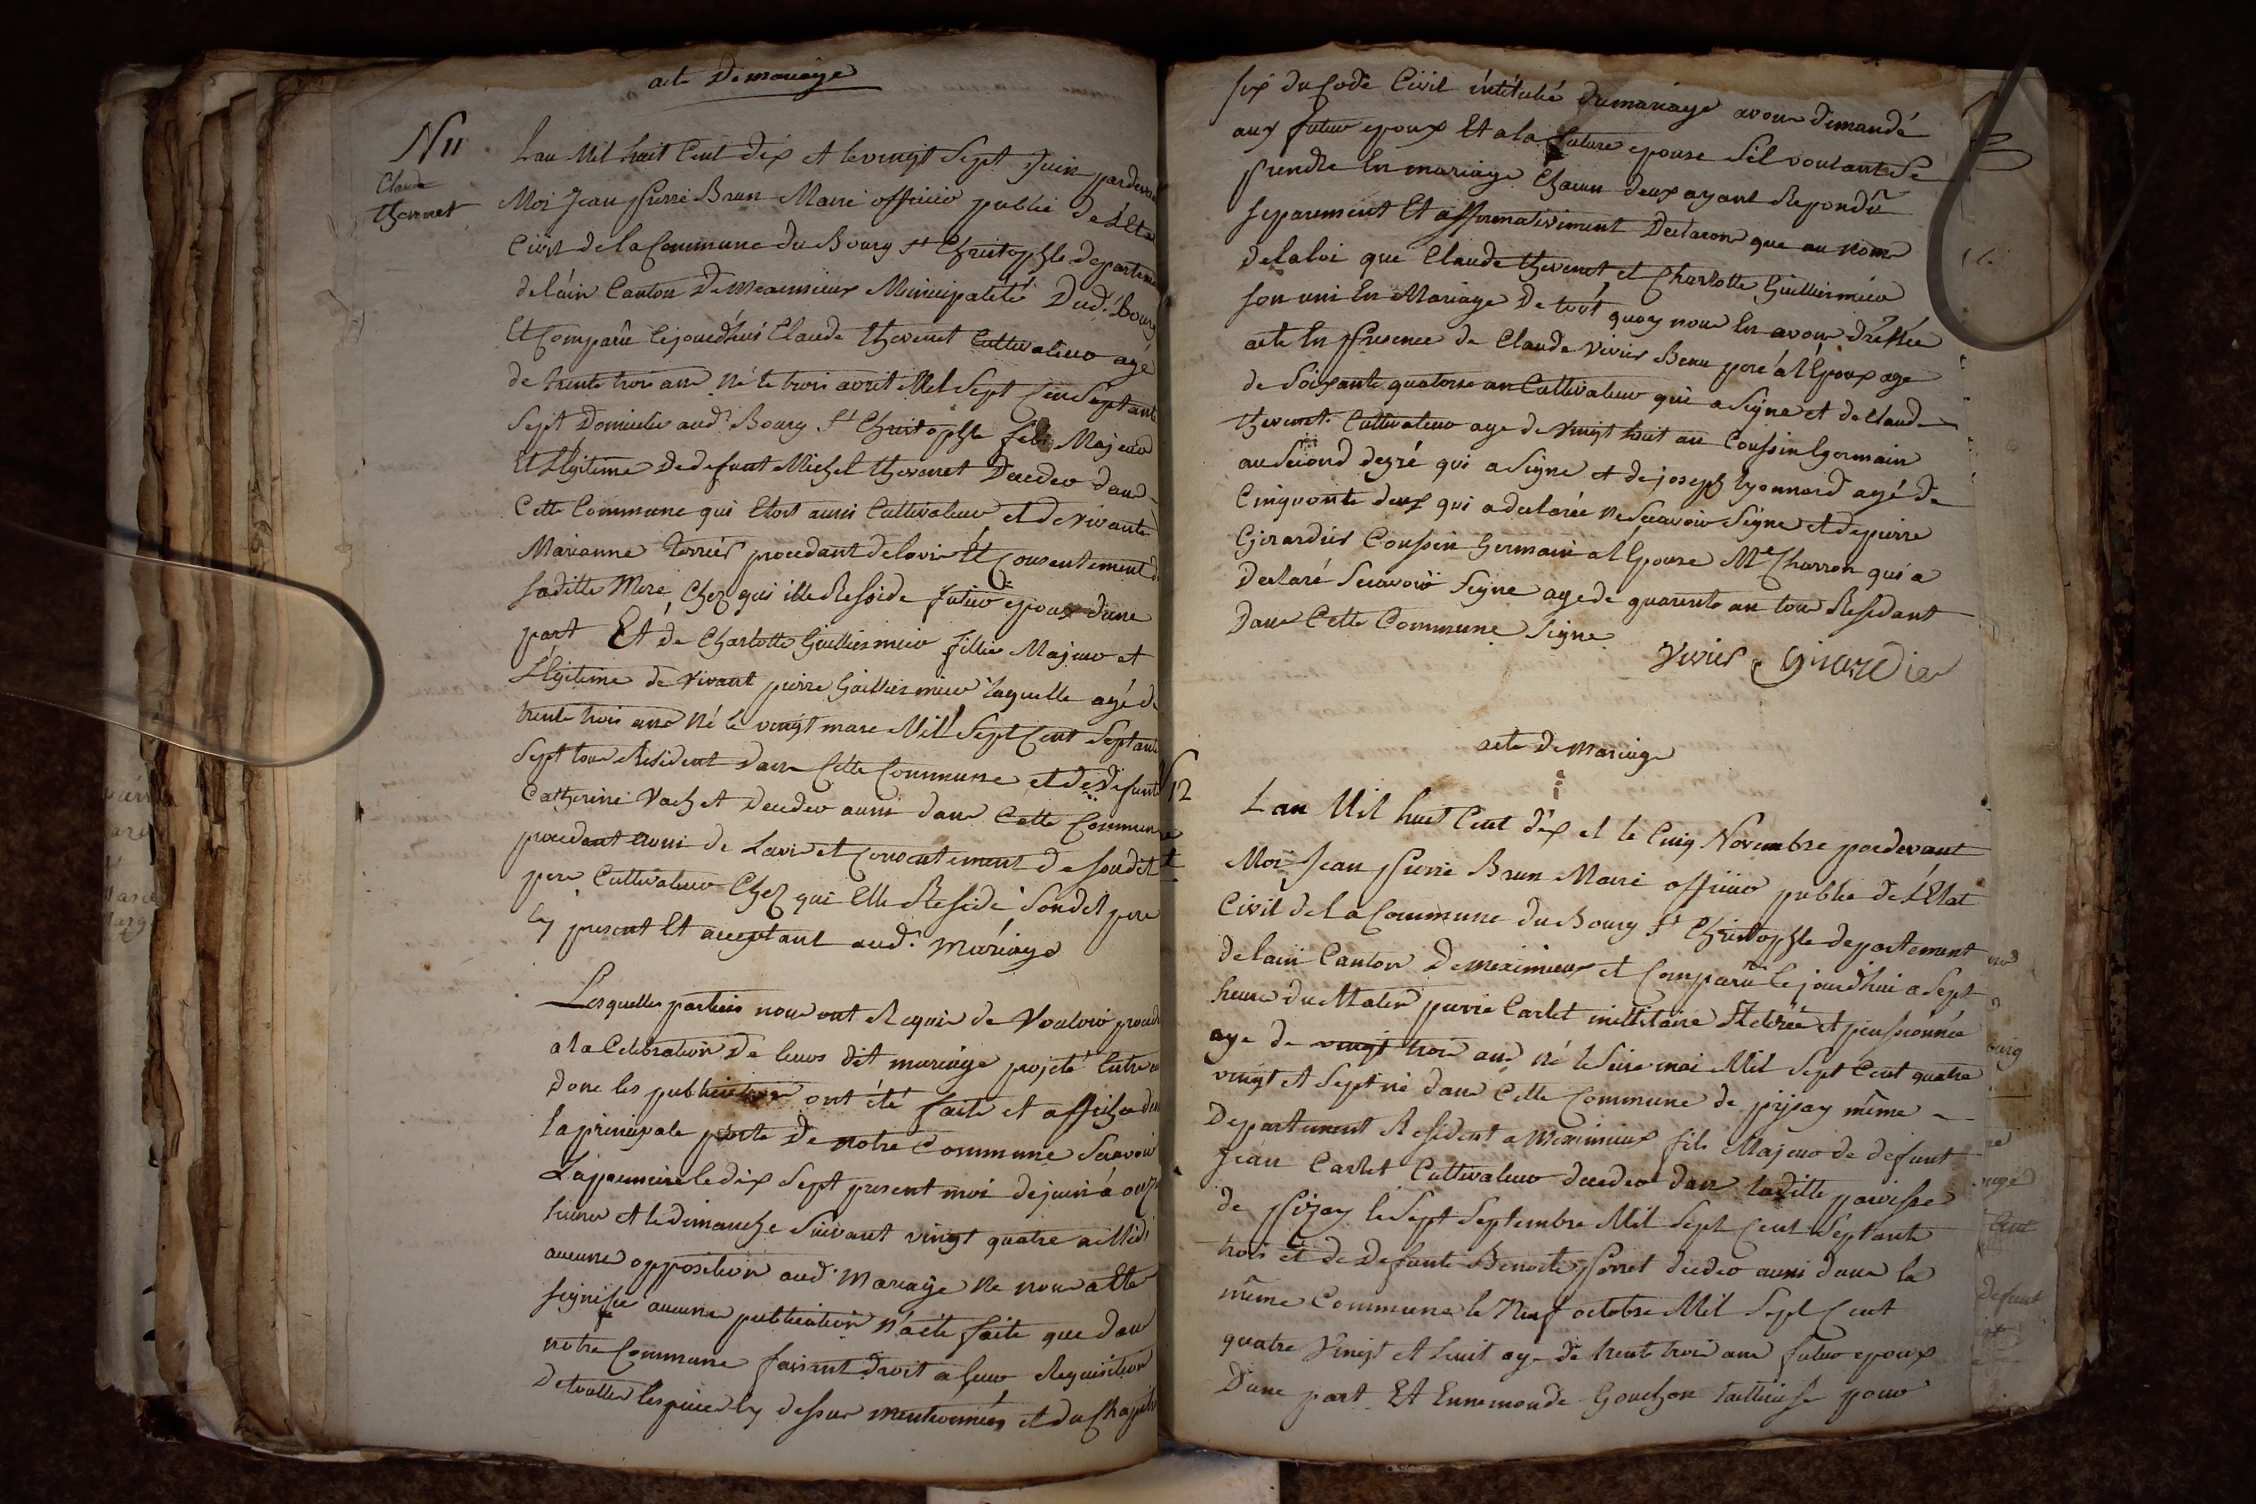 acte De mariage
N 11
Claude
thevenet
Lan Mil huit Cent dix et le vingt Sept Juin pardevant
Moi Jean pierre Brun Maire officier public de l'Eta
Civil de la Commune du Bourg St Christophle departeme
de l'ain Canton De meximieux Municipalité Dud. Bourg
Et Comparû Cejourdhui Claude thevenet Cultivateur agé
de trente trois ans né le trois avril Mil Sept Cen Septante
Sept Domicilié aud. Bourg St Christophle fils Majeur
Et Légitime De defunt Michel thevenet Decedeo dans
Cette Commune qui Etoit aussi Cultivateur et de vivante
Marianne terrier procedant de lavis Et Consentement d
Saditte Mere Chez qui ille Resside futur epoux d'une
part Et de Charlotte Guilliermier fillie Majeur et
Légitime de vivant pierre Guilliermier laquelle agé de
trente trois ans né le vingt mars Mil Sept Cent Septante
Sept tous Résident dans Cette Commune et de defunte
Catherine Vachet Decedeo aussi dans Cette Commune
procedant aussi de Lavis et Consentement de Sondit
pere Cultivateur Chez qui Elle Reside Sondit pere
Cy present Et acceptant aud. Mariage
Lesquelles parties nous ont Requis de Vouloir procede
a la Celebration De leurs dit mariage projeté Entre eu
Donc les publication ont été faite et affiché de
la principale porte De notre Commune Scavoir
La premiere le dix Sept present moi de juin á onze
heures et le dimanche Suivant vingt quatre a Midi
aucune opposition aud. Mariage ne nous a Ete
Signifie aucune publication n'a eté faite que dans
notre Commune faisant Droit a leur Requisition
De toutte les pieces Cy dessus mentionnées et du Chapitre
Six du Code Civil intitulé du mariage avons demandé
aux futur epoux Et a la future epouse S'il voulant Se
prendre En mariage Chacun deux ayant Repondû
Separement Et affirmativement Declarons que au nom
de la loi que Claude thevenet et Charlotte Guilliermier
son uni En Mariage De tout quoy nous En avons dréssée
acte En presence de Claude Vivier Beau pere á l'Epoux age
de Soixante quatorse an Cultivateur qui a Signe et de Claude
thevenet Cultivateur age de Vingt huit an Coussin Germain
au Second degré qui a Signe et de joseph lyonnard agé de
Cinquante deux qui a declarée ne Scavoir Signe et de pierre
Girardier Coussin Germain a l'Epouse Me Charron qui a
declaré Scavoir Signe age de quarente an tous Residant
dans Cette Commune Signe
Vivier Girardier
acte De Mariage
12
Lan Mil huit Cent dix et le Cinq Novembre pardevant
Moi Jean pierre Brun Maire officier publie de L'Etat
Civil de la Commune du Bourg St Christophle departement
de lain Canton De meximieux et Comparû Cejourdhui a Sept
heure du Matin pierre Carlet millitaire Retirée et penssionnée
age de vingt trois ans né le Seise mai Mil Sept Cent quatre
vingt et Sept né dans Cette Commune de pizay même
Departement Resident a Meximieux fils Majeur de defunt
Jéan Carlet Cultivateur decedeo dans laditte paroisse
de pizay le Sept Septembre Mil Sept Cent Séptante
trois et de Defunte Benoite perret decedeo aussi dans la
même Commune le Neuf octobre Mil Sept Cent
quatre Vingt et huit age de trente trois ans futur epoux
D'une part Et Ennemonde Gonchon taillieuse pour